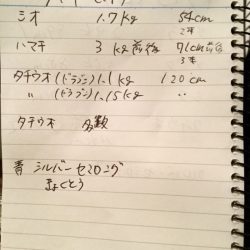 シオ 1.7kg 54cm
2本
ハマチ 3kg前後 71cm前後
3本
タチウオ (ドラゴン) 1.1kg 120cm
〃 (ドラゴン) 1.15kg 〃
タチウオ 多数
青 シルバー セミロング
きょくとう